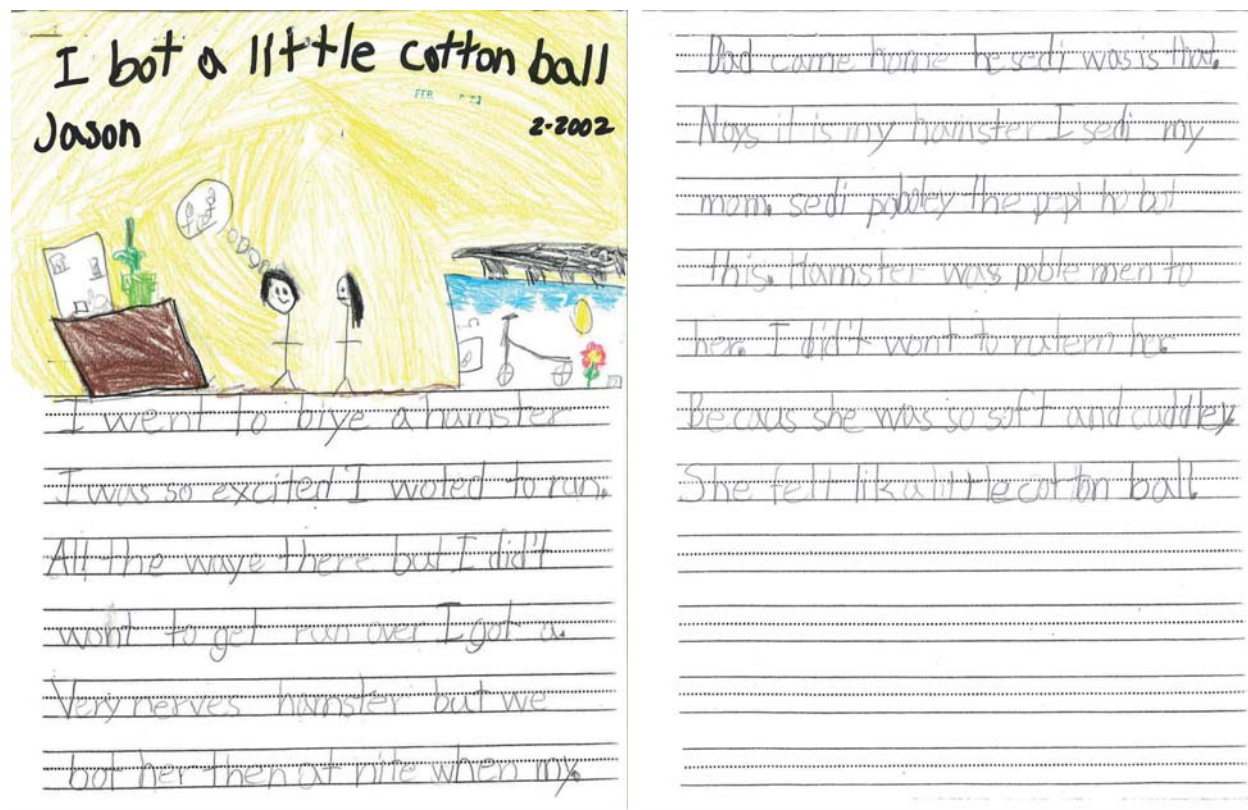 I bot a little cotton ball
FEB
Jason
2-2002
I went to biye a hamster
I was so excited I woted to run.
All the waye there but I did't
wont to get run over I got a.
Very nerves hamster but we
bot her then at nite when my.
Dad came home he sedi was is that.
Nays it is my hamster I sedi my
mom. sedi pobbley the pepl ho bot
this. Hamster was poble men to
her. I did't wont to rutern her.
Becaus she was so soft and cuddley.
She felt lik a little cotton ball.